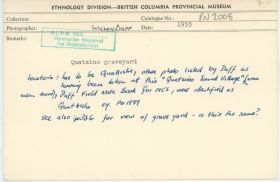 ETHNOLOGY DIVISION—BRITISH COLUMBIA PROVINCIAL MUSEUM
Collection:
Catalogue No.: PN 2008
Photographer: Wilson Duff
1955
Remarks:
BCPM NEG.
Permission Required
for Reproduction
Quatsino graveyard
location: has to be Quattishe, other photo listed by Duff as
having been taken at this "Quatsino Sound Village" (
Duff Field Note Book for 1955, were identified as
Quattishe eg. PN 1989
see also for view of grave yard - is this the same?